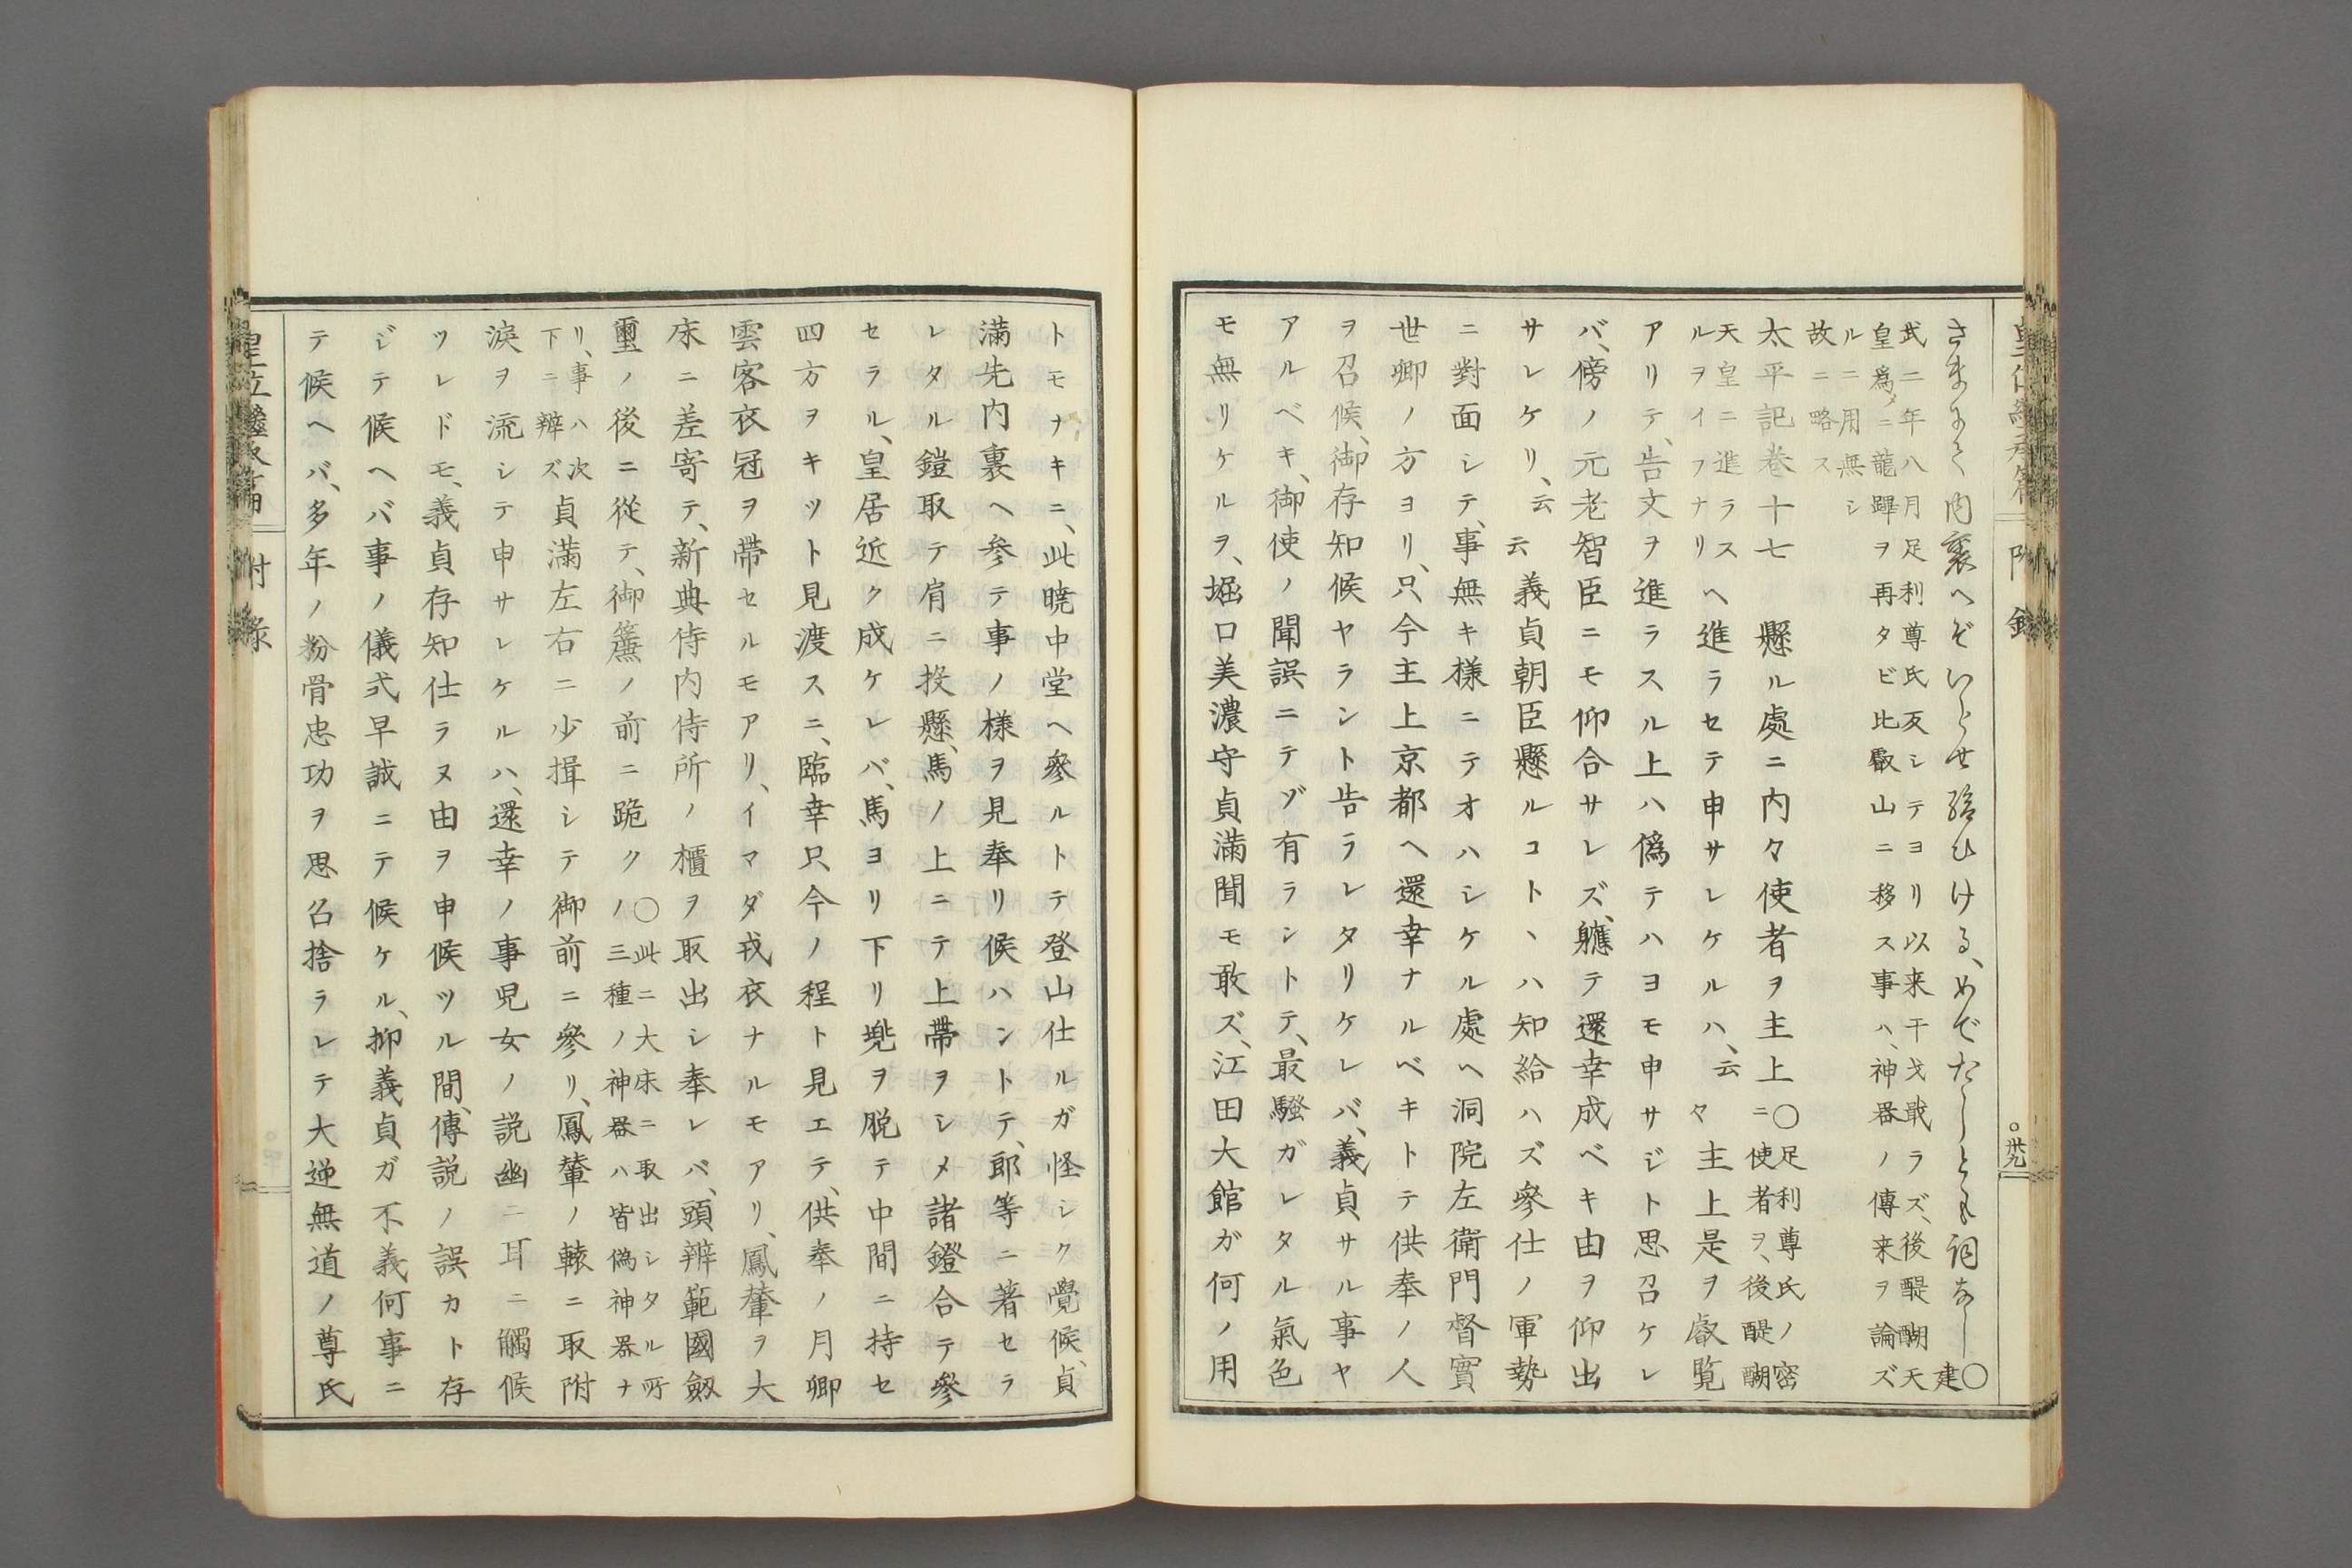 さまよく内裏へぞいらせ給ひける、めでたしとも詞なし〇建
武二年八月足利尊氏反シテヨリ以来干戈戢ラズ、後醍醐天
皇爲メニ龍蹕ヲ再タビ比叡山ニ移ス事ハ、神器ノ傳来ヲ論ズ
ルニ用無シ
故ニ略ス
太平記巻十七 懸ル處ニ内々使者ヲ主上ニ〇足利尊氏ノ密
使者ヲ、後醍醐
天皇ニ進ラス
ルヲイフナリ
ヘ進ラセテ申サレケルハ、云々主上是ヲ叡覧
アリテ、告文ヲ進ラスル上ハ偽テハヨモ申サジト思召ケレ
バ、傍ノ元老智臣ニモ仰合サレズ、軈テ還幸成ベキ由ヲ仰出
サレケリ、云云義貞朝臣懸ルコトヽハ知給ハズ參仕ノ軍勢
ニ對面シテ、事無キ様ニテオハシケル處ヘ洞院左衛門督實
世卿ノ方ヨリ、只今主上京都ヘ還幸ナルベキトテ供奉ノ人
ヲ召候、御存知候ヤラント告ラレタリケレバ、義貞サル事ヤ
アルベキ、御使ノ聞誤ニテゾ有ラントテ、最騒ガレタル氣色
モ無リケルヲ、堀口美濃守貞滿聞モ敢ズ、江田大館ガ何ノ用
皇位繼承篇 附錄 〇丗九
トモナキニ、此曉中堂ヘ參ルトテ登山仕ルガ怪シク覺候、貞
滿先内裏ヘ参テ事ノ様ヲ見奉リ候ハントテ、郎等ニ著セラ
レタル鎧取テ肩ニ投懸、馬ノ上ニテ上帶ヲシメ諸鐙合テ參
セラル、皇居近ク成ケレバ、馬ヨリ下リ兜ヲ脱テ中間ニ持セ
四方ヲキツト見渡スニ、臨幸只今ノ程ト見エテ、供奉ノ月卿
雲客衣冠ヲ帶セルモアリ、イマダ戎衣ナルモアリ、鳳輦ヲ大
床ニ差寄テ、新典侍内侍所ノ櫃ヲ取出シ奉レバ、頭辨範國劔
璽ノ後ニ從テ、御簾ノ前ニ跪ク〇此ニ大床ニ取出シタル所
ノ三種ノ神器ハ皆偽神器ナ
リ、事ハ次
下ニ辨ズ
貞滿左右ニ少揖シテ御前ニ參リ、鳳輦ノ轅ニ取附
涙ヲ流シテ申サレケルハ、還幸ノ事児女ノ説幽ニ耳ニ觸候
ツレドモ、義貞存知仕ラヌ由ヲ申候ツル間、傳説ノ誤カト存
ジテ候ヘバ事ノ儀式早誠ニテ候ケル、抑義貞ガ不義何事ニ
テ候ヘバ、多年ノ粉骨忠功ヲ思召捨ラレテ大逆無道ノ尊氏
皇位繼承篇 附錄